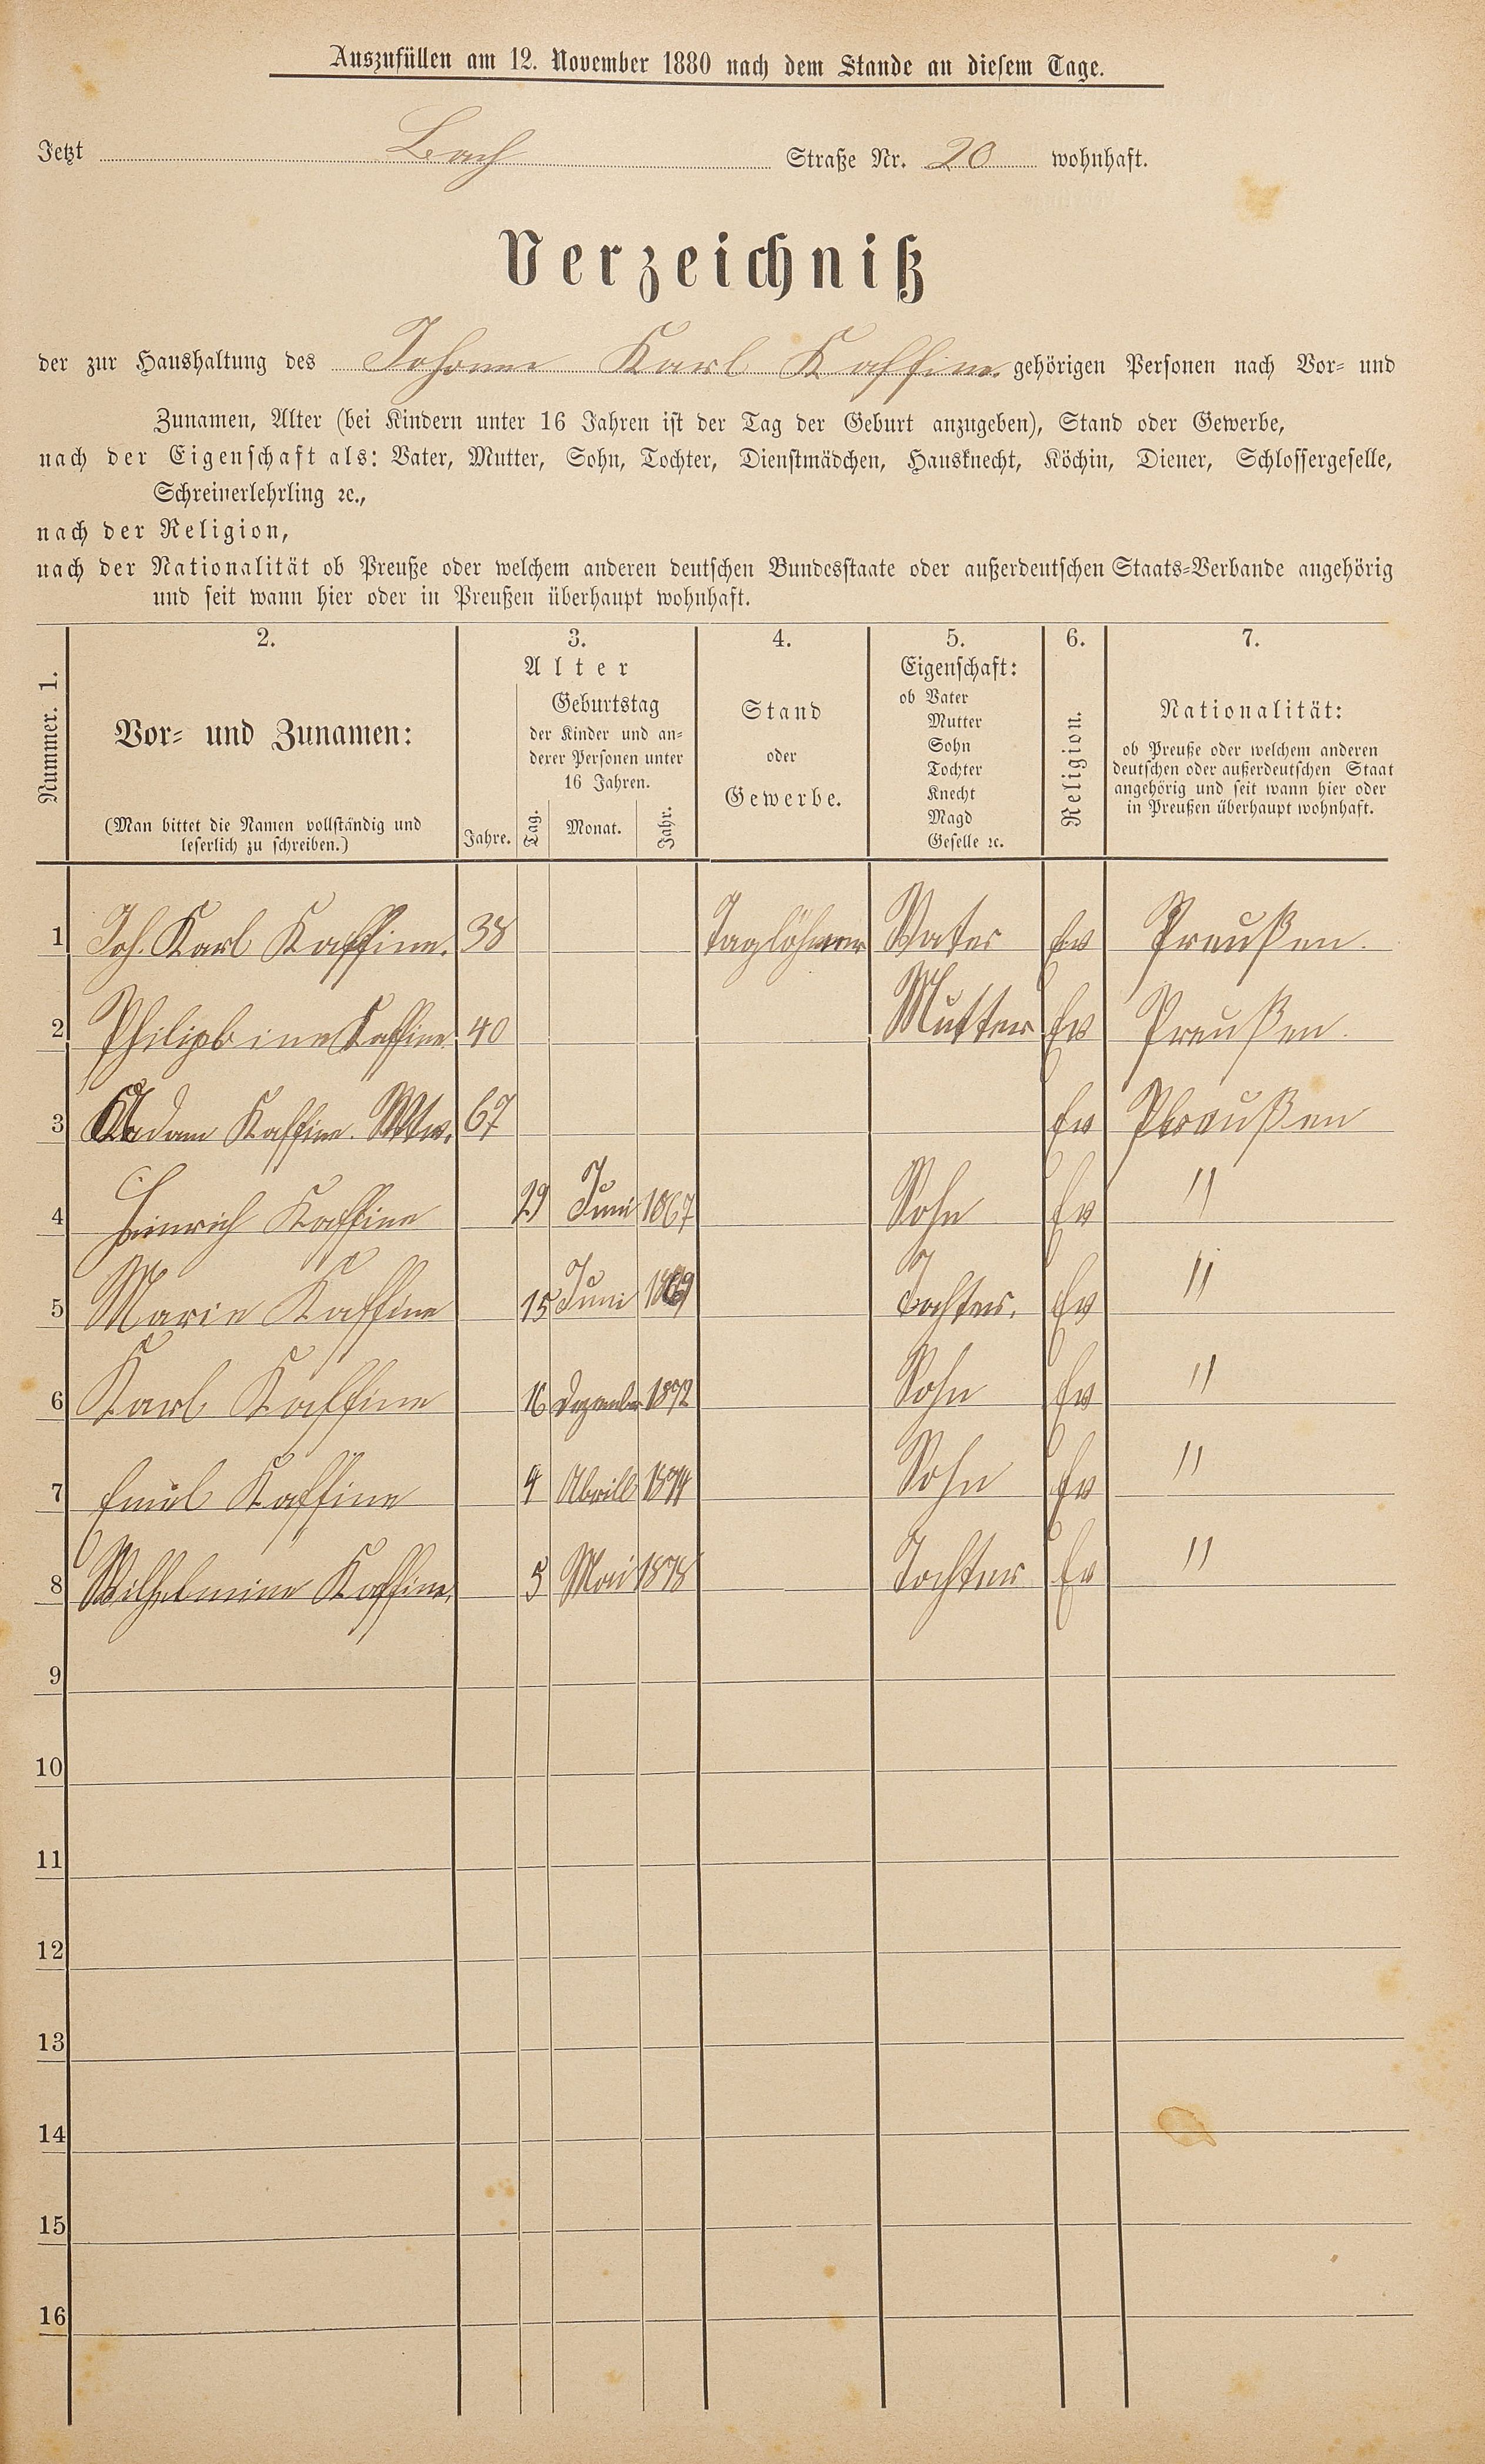 Auszufüllen am 12. November 1880 nach dem Stande an diesem Tage.
Jetzt Bach Straße Nr. 20 wohnhaft.
Verzeichniß
der zur Haushaltung des Johann Karl Kaffine. gehörigen Personen nach Vor- und
Zunamen, Alter (bei Kindern unter 16 Jahren ist der Tag der Geburt anzugeben), Stand oder Gewerbe,
nach der Eigenschaft als: Vater, Mutter, Sohn, Tochter, Dienstmädchen, Hausknecht, Köchin, Diener, Schlossergeselle,
Schreinerlehrling ꝛc.,
nach der Religion,
nach der Nationalität ob Preuße oder welchem anderen deutschen Bundesstaate oder außerdeutschen Staats-Verbande angehörig
und seit wann hier oder in Preußen überhaupt wohnhaft.
Nummer. 1.
2.
Vor- und Zunamen:
(Man bittet die Namen vollständig und
leserlich zu schreiben.)
3.
Alter
Jahre.
Geburtstag
der Kinder und an-
derer Personen unter
16 Jahren.
Tag. Monat. Jahr.
4.
Stand
oder
Gewerbe.
5.
Eigenschaft:
ob Vater
Mutter
Sohn
Tochter
Knecht
Magd
Geselle ꝛc.
6.
Religion.
7.
Nationalität:
ob Preuße oder welchem anderen
deutschen oder außerdeutschen Staat
angehörig und seit wann hier oder
in Preußen überhaupt wohnhaft.
1 Joh. Karl Kaffine. 38 Taglöhner Vater Ev Preußen.
2 Philipbine Kaffine 40 Mutter Ev Preußen.
3 Adam Kaffine. Wtw. 67 Ev Preußen
4 Heinrich Kaffine 29 Juni 1867 Sohn Ev "
5 Marie Kaffine 15 Juni 1869 Tochter. Ev "
6 Karl Kaffine 16 Dezember 1872 Sohn Ev "
7 Emil Kaffine 4 Abrill 1874 Sohn Ev "
8 Wilhelmine Kaffine. 5 Mai 1878 Tochter Ev "
9
10
11
12
13
14
15
16